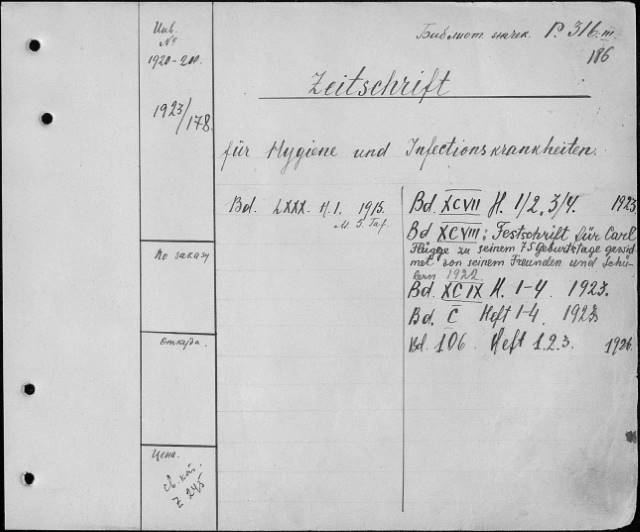 Инв.
№
1920-211.
1923/178.
По заказу
откуда.
Цена.
св. кат.
Z 245
Библиот. значек. P. 316 III
186
Zeitschrift
für Hygiene und Infectionskrankheiten.
Bd. LXXX. H. 1. 1915.
M. 5 Taf.
Bd. XCVII H. 1/2, 3/4. 1923
Bd XCVIII: Festschrift für Carl
Flügge zu seinem 75 Geburtstage gewid
met von seinem Freunden und Schü-
lern 1922
Bd. XCIX H. 1-4. 1923.
Bd. C Heft 1-4. 1923
Bd. 106. Heft 1.2.3. 1926.